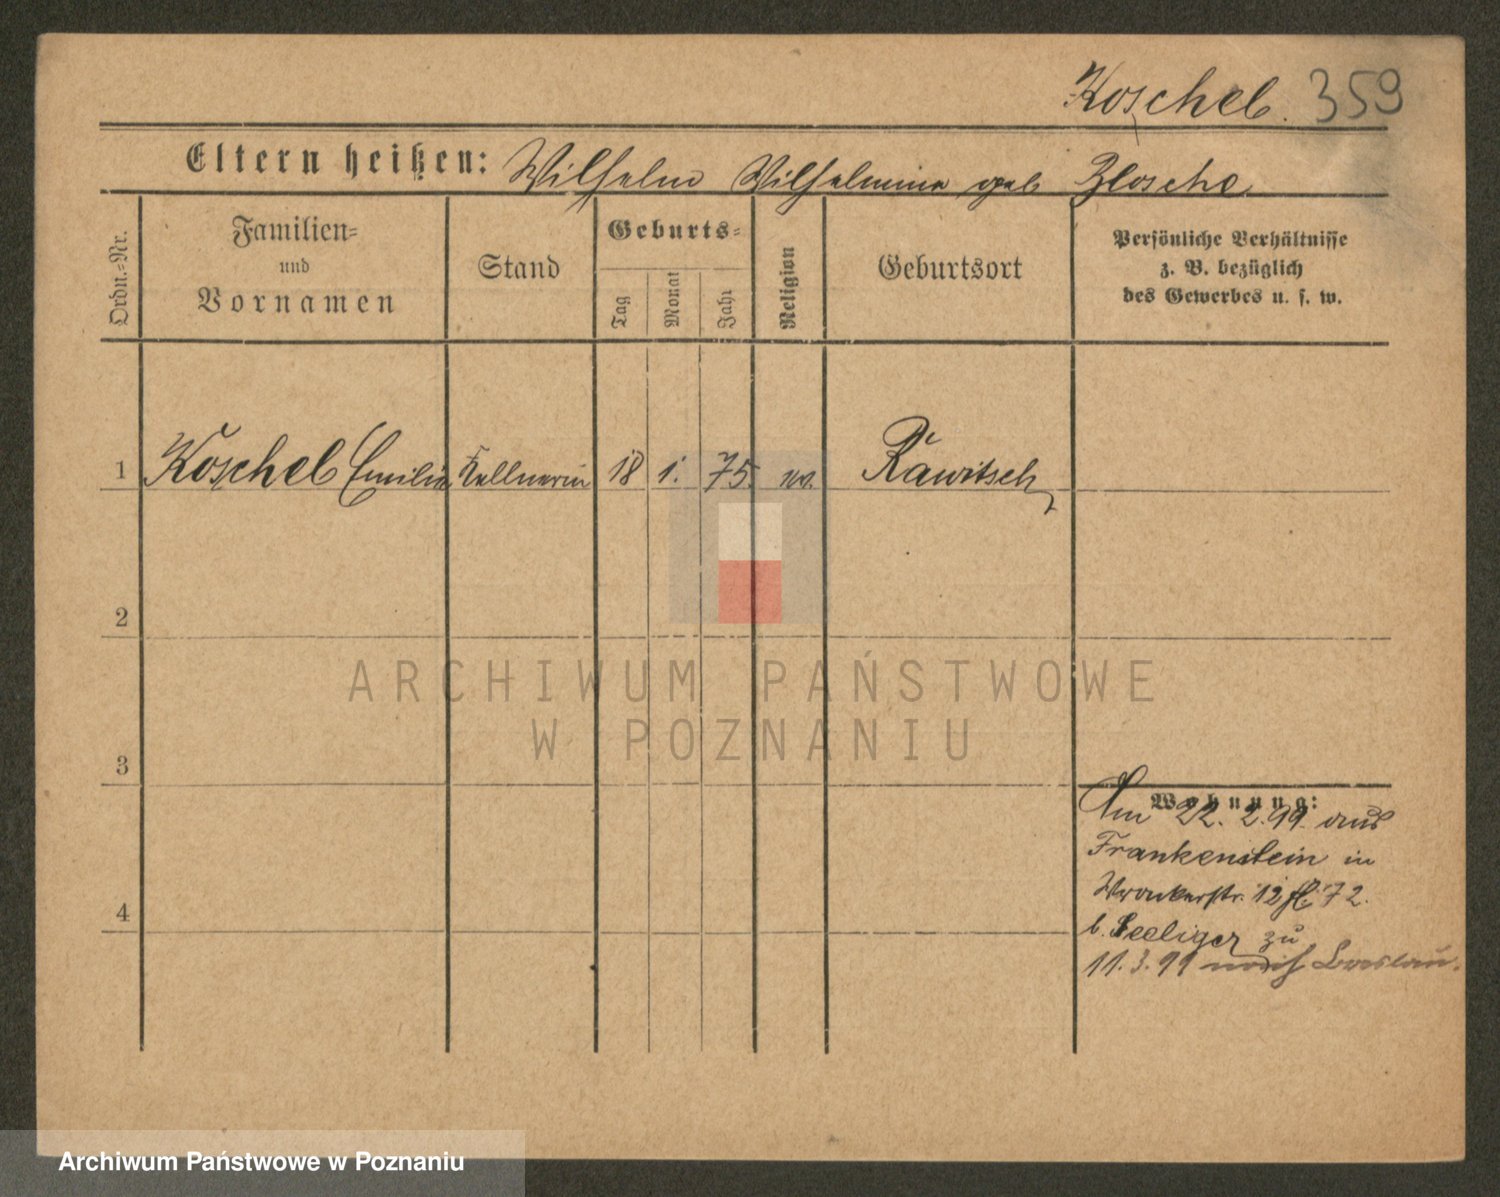 Koschel. 359
Eltern heißen: Wilhelm Wilhelmine geb
Ordn.=Nr.
Familien=
und
Vornamen
Stand
Geburts=
Tag
Monat
Jahr
Religion
Geburtsort
Persönliche Verhältnisse
z. B. bezüglich
des Gewerbes u. s. w.
1 Koschel Emilie Kellnerin 18 1. 75. ev. Rawitsch
2
3
4
Wohnung:
Am 22. 2. 99. aus
Frankenstein in
Wronkerstr. 12 72.
b. Seeliger zu
11. 3. 99 nach Breslau.
ARCHIWUM PAŃSTWOWE
W POZNANIU
Archiwum Państwowe w Poznaniu